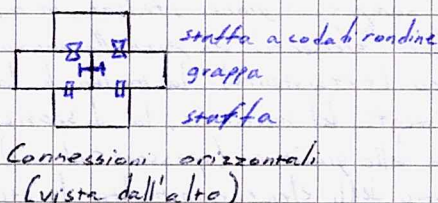 staffa a coda di rondine
grappa
staffa
Connessioni orizzontali
(vista dall'alto)